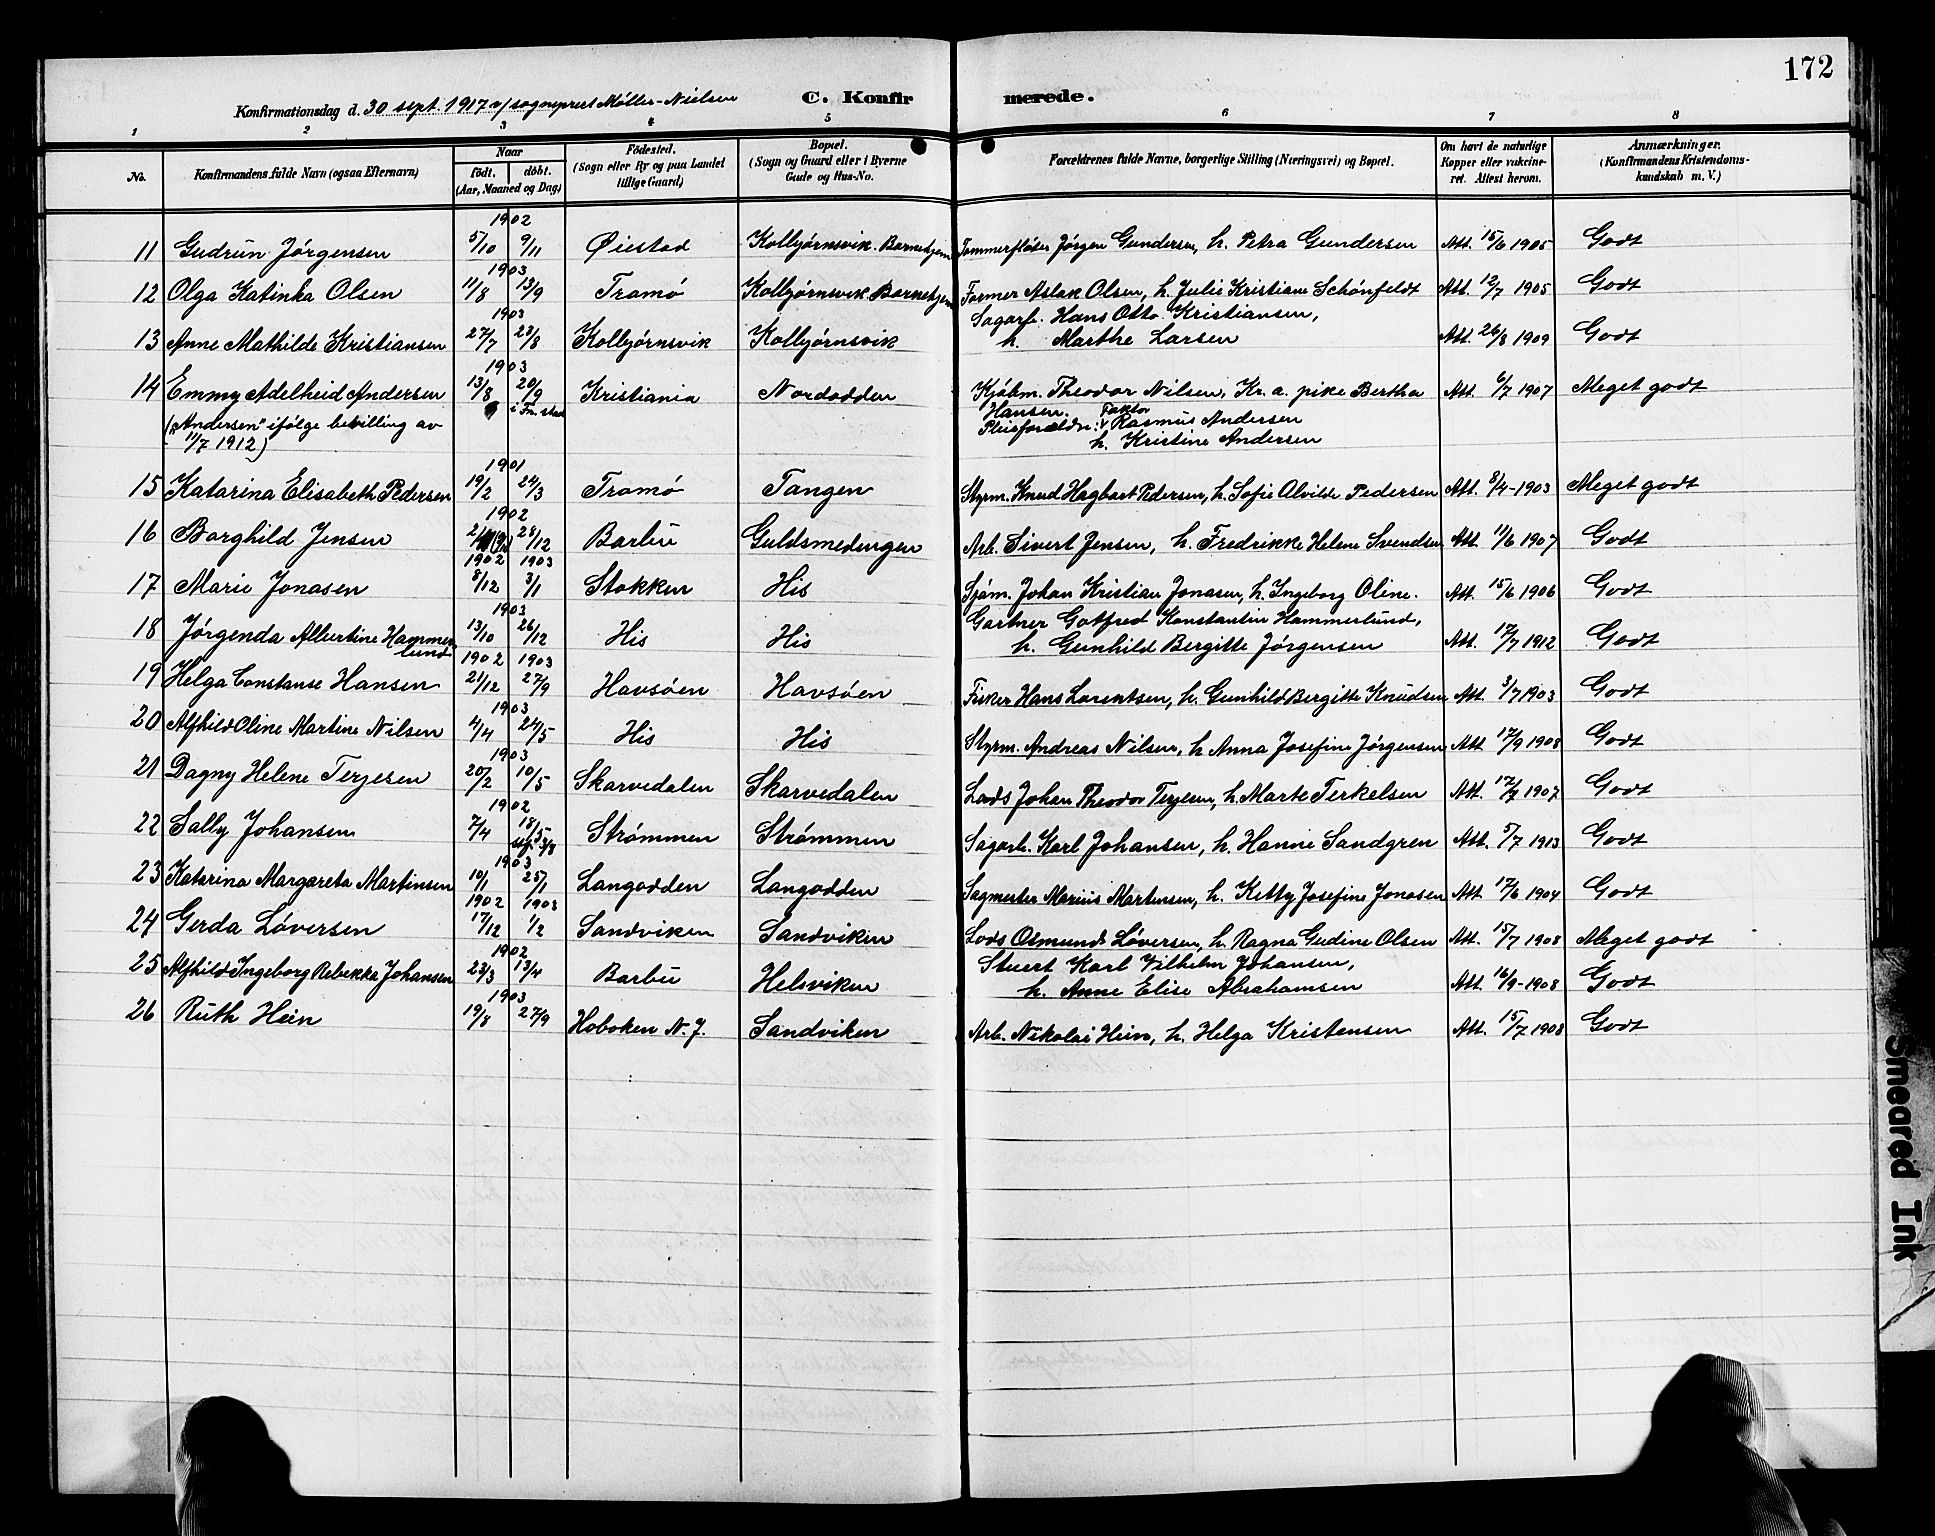 172
Konfirmationsdag d. 30 sept. 1917 v/ sogneprest Møller-Nielsen C. Konfir merede.
1 2 3 4 5 6 7 8
No. Konfirmandens fulde Navn (ogsaa Efternavn) Naar født. døbt. (Aar, Maaned og Dag) Fødested. (Sogn eller By og paa Landet tillige Gaard) Bopæl. (Sogn og Gaard eller i Byerne Gade og Hus-No. Forældrenes fulde Navne, borgerlige Stilling (Næringsvei) og Bopæl. Om havt de naturlige Kopper eller vakcineret. Attest herom. Anmærkninger. (Konfirmandens Kristendomskundskab m. V.)
1902
11 Gudrun Jørgensen 5/10 9/11 Øiestad Kolbjørnsvik. Barnehjem Tømmerfløter Jørgen Gundersen, h. Petra Gundersen Att. 15/6 1905 Godt
1903
12 Olga Katinka Olsen 11/8 13/9 Tromø Kolbjørnsvik Barnehjem Former Aslak Olsen, h. Julie Kristiane Schönfeldt Att. 12/7 1905 Godt
1903 Sagarb. Hans Otto Kristiansen,
13 Anne Mathilde Kristiansen 27/7 23/8 Kolbjørnsvik Kolbjørnsvik h. Marthe Larsen Att. 26/8 1909 Godt
1903
14 Emmy Adelheid Andersen 13/8 20/9 Kristiania Nordodden Kjøbm. Theodor Nilsen, Kr. a. pike Bertha Att. 6/7 1907 Meget godt
i Fr. stad Hansen. Faktor
("Andersen" ifølge bevilling av Pleieforældre: Rasmus Andersen
11/7 1912) h. Kristine Andersen
1901
15 Katarina Elisabeth Pedersen 19/2 24/3 Tromø Tangen Styrm. Knud Hagbart Pedersen, h. Sofie Alvilde Pedersen Att. 8/4-1903 Meget godt
1902
16 Borghild Jensen 28/12 Barbu Guldsmedengen Arb. Sivert Jensen, h. Fredrikke Helene Svendsen Att. 11/6 1907 Godt
1902 1903
17 Marie Jonasen 8/12 3/1 Stokken His Sjøm. Johan Kristian Jonasen, h. Ingeborg Oline. Att. 15/6 1906 Godt
1903 Gartner Gotfred Konstantin Hammerlund,
18 Jørgenda Albertine Hammerlund 13/10 26/12 His His h. Gunhild Bergitte Jørgensen Att. 17/7 1912 Godt
1902 1903
19 Helga Constanse Hansen 21/12 27/9 Havsøen Havsøen Fisker Hans Lorentsen, h. Gunhild Bergitte Knudsen Att. 3/7 1903 Godt
1903
20 Alfhild Oline Martine Nilsen 4/4 24/5 His His Styrm. Andreas Nilsen, h. Anna Josefine Jørgensen Att. 17/9 1908 Godt
1903
21 Dagny Helene Terjesen 20/2 10/5 Skarvedalen Skarvedalen Lods Johan Theodor Terjesen, h. Marte Terkelsen Att. 1907 Godt
1902
22 Sally Johansen 7/4 18/5 Strømmen Strømmen Sagarb. Karl Johansen, h. Hanne Sandgren Att. 5/7 1913 Godt
3/8
1903
23 Katarina Margareta Martinsen 10/1 25/1 Langodden Langodden Sagmester Marius Martensen, h. Kitty Josefine Jonasen Att. 17/6 1904 Godt
1902 1903
24 Gerda Løversen 17/12 1/2 Sandviken Sandviken Lods Osmund Løversen, h. Ragna Gudine Olsen Att. 15/7 1908 Meget godt
1902 Stuert Karl Vilhelm Johansen,
25 Alfhild Ingeborg Rebekka Johansen 23/3 13/4 Barbu Helsviken h. Anne Elise Abrahamsen Att. 16/9-1908 Godt
1903
26 Ruth Hein 19/8 27/9 Hoboken N.J. Sandviken Arb. Nikolai Hein, h. Helga Kristensen Att. 15/7 1908 Godt
Smeared Ink